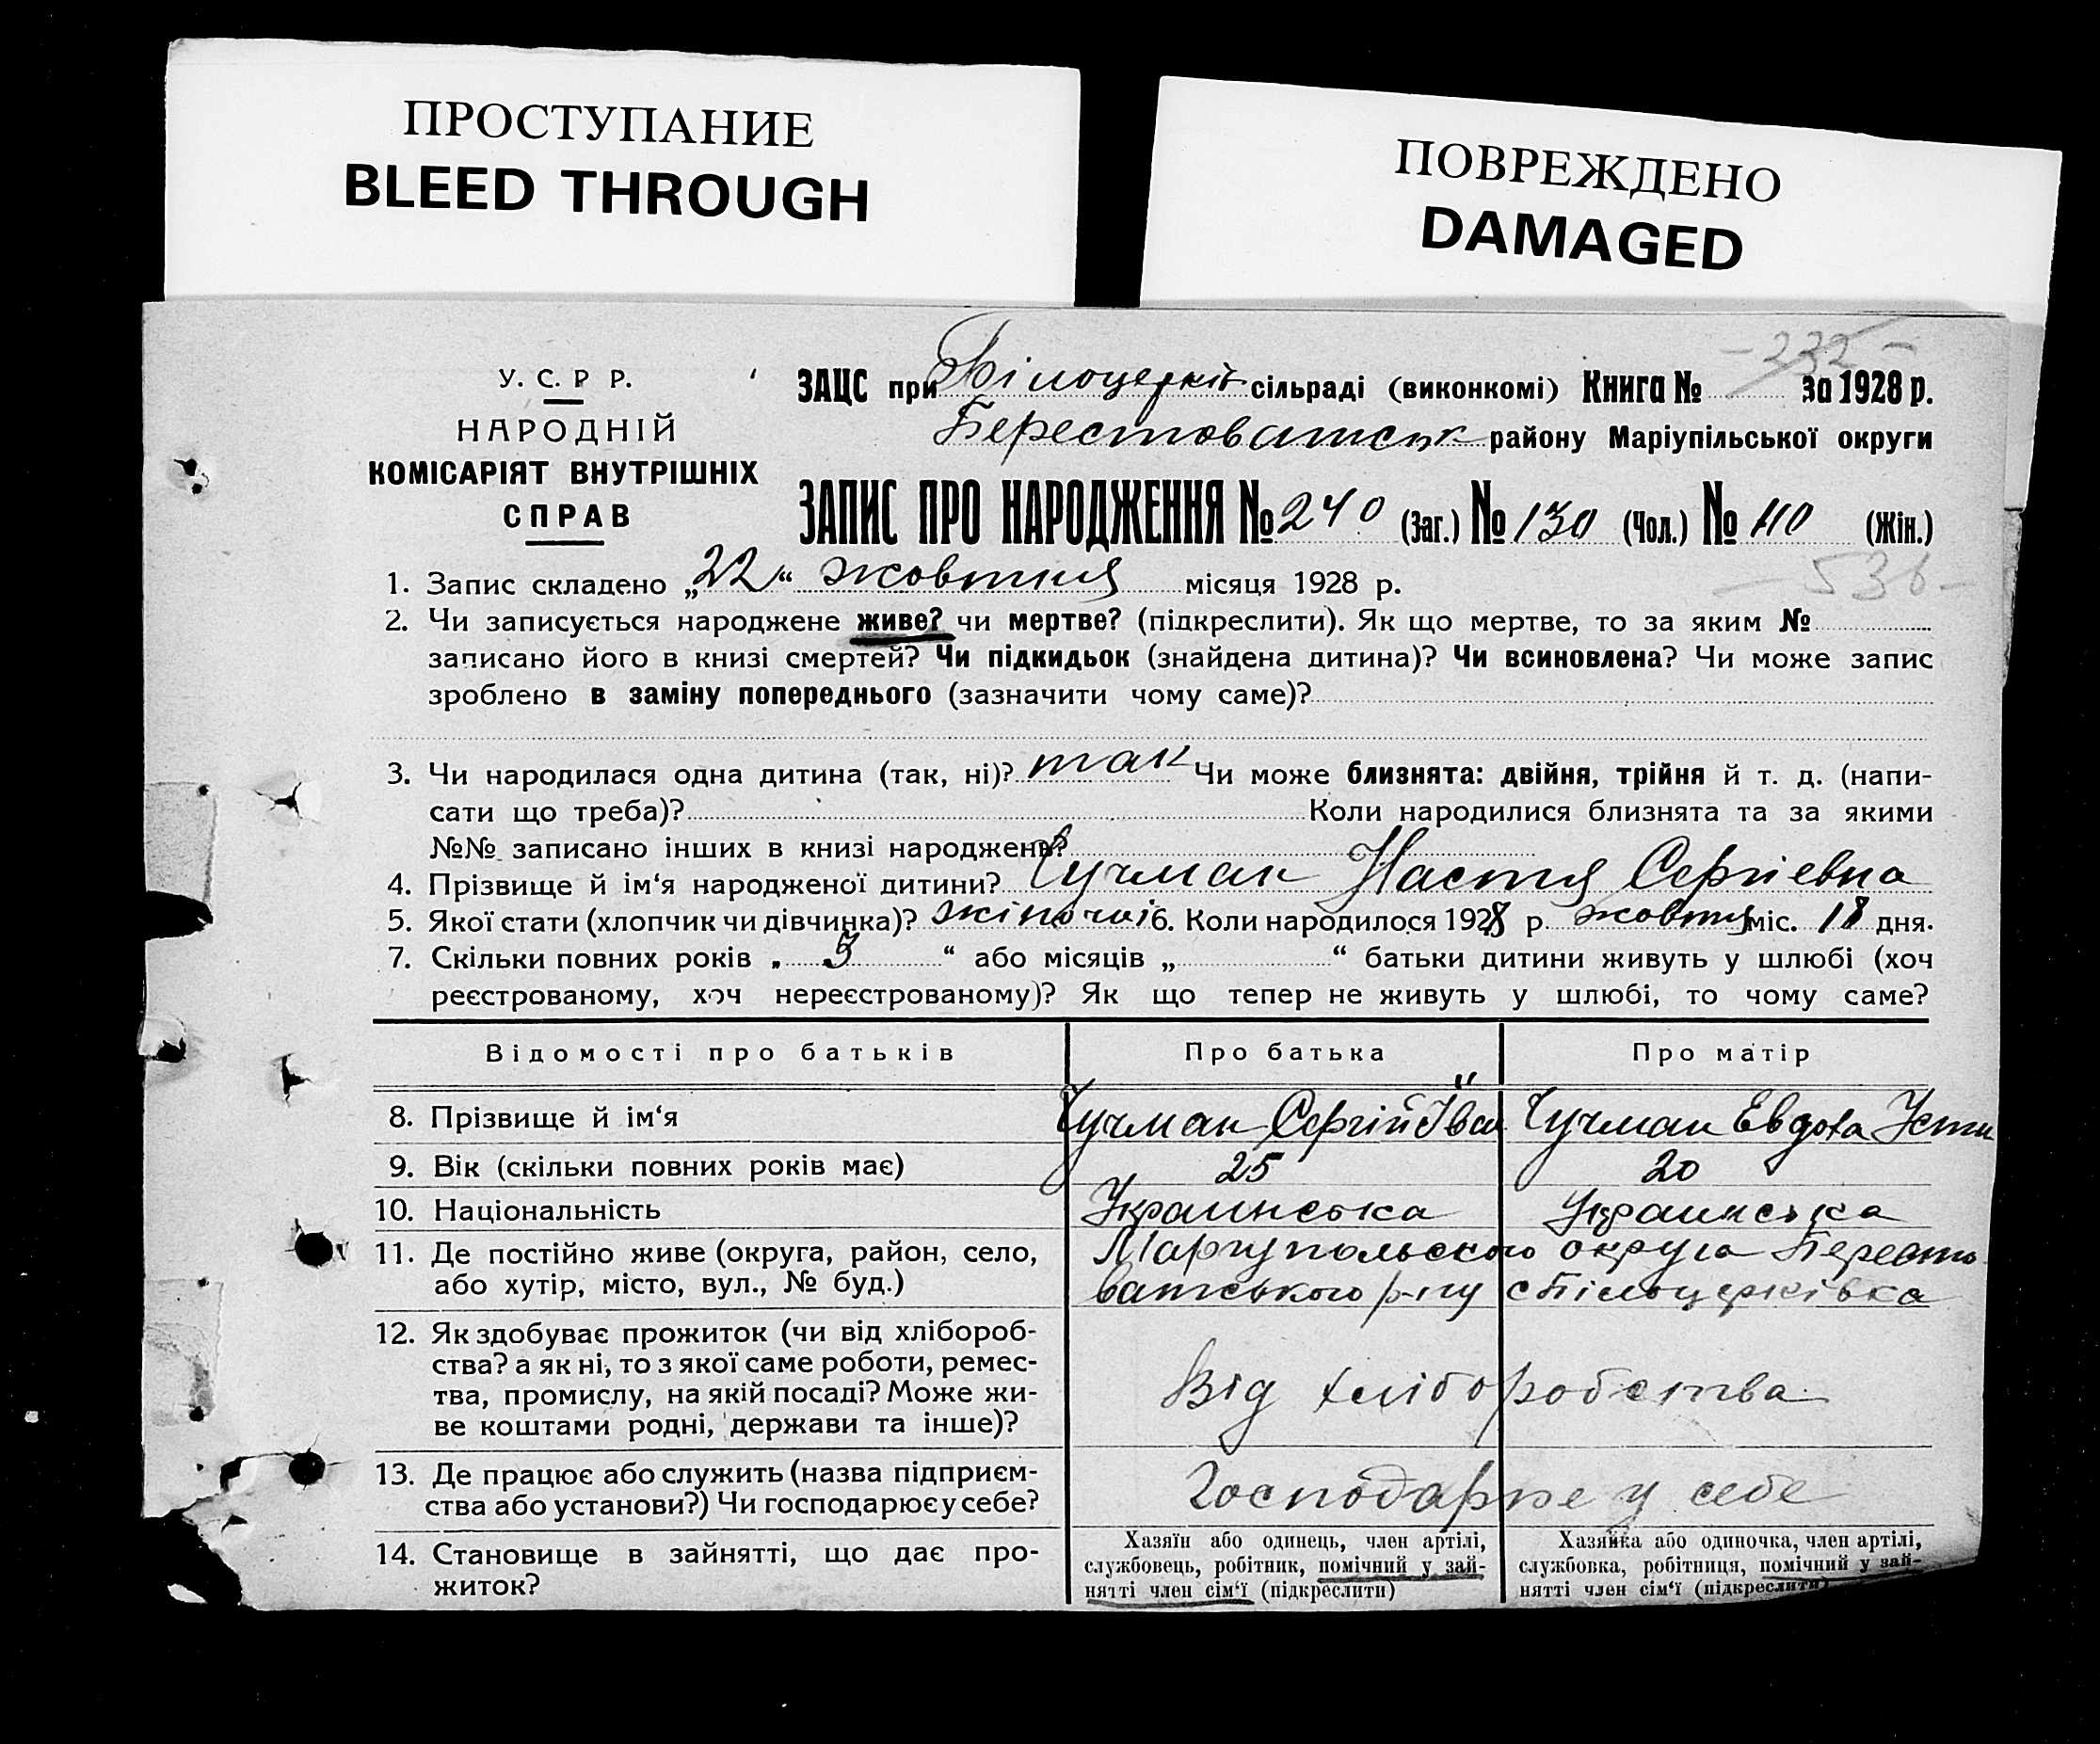 ПРОСТУПАНИЕ
BLEED THROUGH
ПОВРЕЖДЕНО
DAMAGED
- 232 -
У. С. Р Р.
НАРОДНІЙ
КОМІСАРІЯТ ВНУТРІШНІХ
СПРАВ
ЗАЦС при Білоцерків сільраді (виконкомі) Книга № за 1928 р.
Берестоватськ району Маріупільської округи
ЗАПИС ПРО НАРОДЖЕННЯ № 240 (Заг.) № 130 (Чол.) № 110 (Жін.)
- 536 -
1. Запис складено „22“ жовтня місяця 1928 р.
2. Чи записується народжене живе? чи мертве? (підкреслити). Як що мертве, то за яким №
записано його в книзі смертей? Чи підкидьок (знайдена дитина)? Чи всиновлена? Чи може запис
зроблено в заміну попереднього (зазначити чому саме)?
3. Чи народилася одна дитина (так, ні)? так Чи може близнята: двійня, трійня й т. д. (напи-
сати що треба)? Коли народилися близнята та за якими
№№ записано інших в книзі народжень?
4. Прізвище й ім‘я народженої дитини? Чучман Настя Сергіевна
5. Якої стати (хлопчик чи дівчинка)? жіночої 6. Коли народилося 1928 р. жовтня міс. 18 дня.
7. Скільки повних років „ 3 “ або місяців „ “ батьки дитини живуть у шлюбі (хоч
реєстрованому, хоч нереєстрованому)? Як що тепер не живуть у шлюбі, то чому саме?
Відомості про батьків Про батька Про матір
8. Прізвище й ім‘я Чучман Сергій Іван Чучман Евдоха Усти
9. Вік (скільки повних років має) 25 20
10. Національність Украинська Украинська
11. Де постійно живе (округа, район, село, Маріупольского округа Берасто
або хутір, місто, вул., № буд.) ватського р-ну с Білоцерківка
12. Як здобуває прожиток (чи від хлібороб-
ства? а як ні, то з якої саме роботи, ремес-
тва, промислу, на якій посаді? Може жи-
ве коштами родні, держави та інше)?
Від хліборобства
13. Де працює або служить (назва підприєм-
ства або установи?) Чи господарює у себе?
Господарює у себе
14. Становище в зайнятті, що дає про-
житок?
Хазяїн або одинець, член артілі,
службовець, робітник, помічний у зай-
нятті член сім‘ї (підкреслити)
Хазяйка або одиночка, член артілі,
службовка, робітниця, помічний у зай-
нятті член сім‘ї (підкреслити)